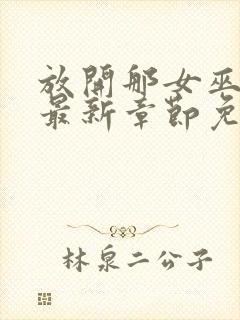 放開那女巫
最新章節免
林泉二公子